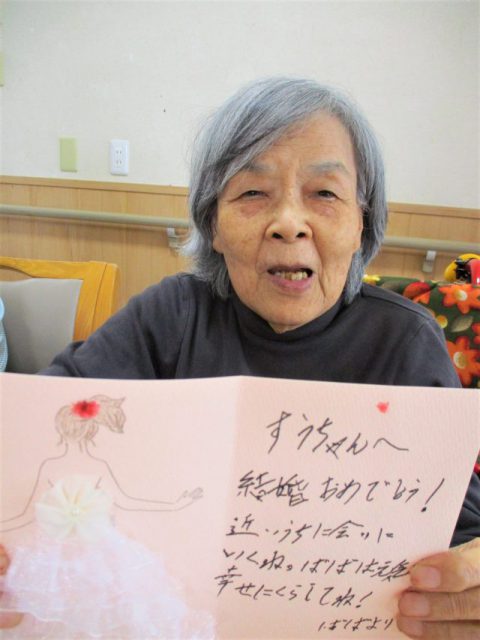 すうちゃんへ
結婚おめでとう!
近いうちに会いに
いくね。ばばは元気
幸せにくらしてね!
ばばより